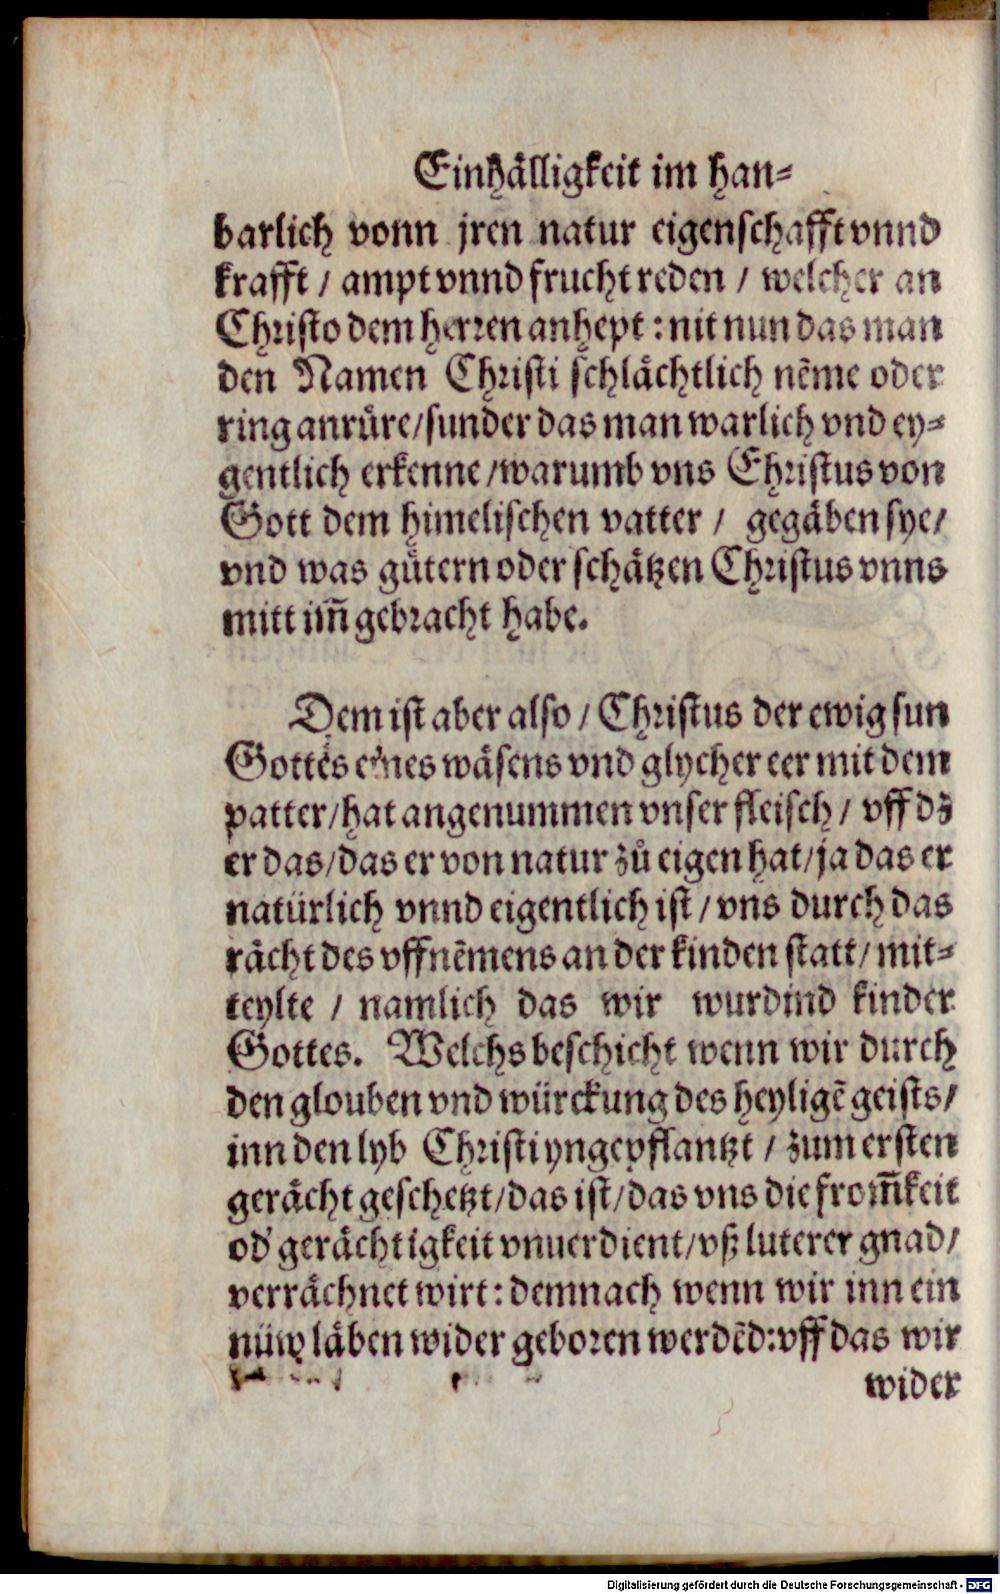 Einhålligkeit im han⸗
barlich vonn jren natur eigenschafft vnnd
krafft / ampt vnnd frucht reden / welcher an
Christo dem herren anhept : nit nun das man
den Namen Christi schlåchtlich nẽme oder
ring anrůre/sunder das man warlich vnd ey⸗
gentlich erkenne /warumb vns Christus von
Gott dem himelischen vatter / gegåben sye/
vnd was gůtern oder schåtzen Christus vnns
mitt im̃ gebracht habe.
Dem ist aber also / Christus der ewig sun
Gottes eines wåsens vnd glycher eer mit dem
patter/hat angenummen vnser fleisch / vff dz
er das/das er von natur zů eigen hat/ja das er
natürlich vnnd eigentlich ist / vns durch das
råcht des vffnẽmens an der kinden statt/ mit⸗
teylte / namlich das wir wurdind kinder
Gottes. Welchs beschicht wenn wir durch
den glouben vnd würckung des heyligẽ geists/
inn den lyb Christi yngepflantzt / zum ersten
geråcht geschetzt/das ist/das vns die from̃keit
od' geråchtigkeit vnuerdient/vß luterer gnad/
verråchnet wirt: demnach wenn wir inn ein
nüw låben wider geboren werdẽd: vff das wir
wider
Digitalisierung gefördert durch die Deutsche Forschungsgemeinschaft - DFG